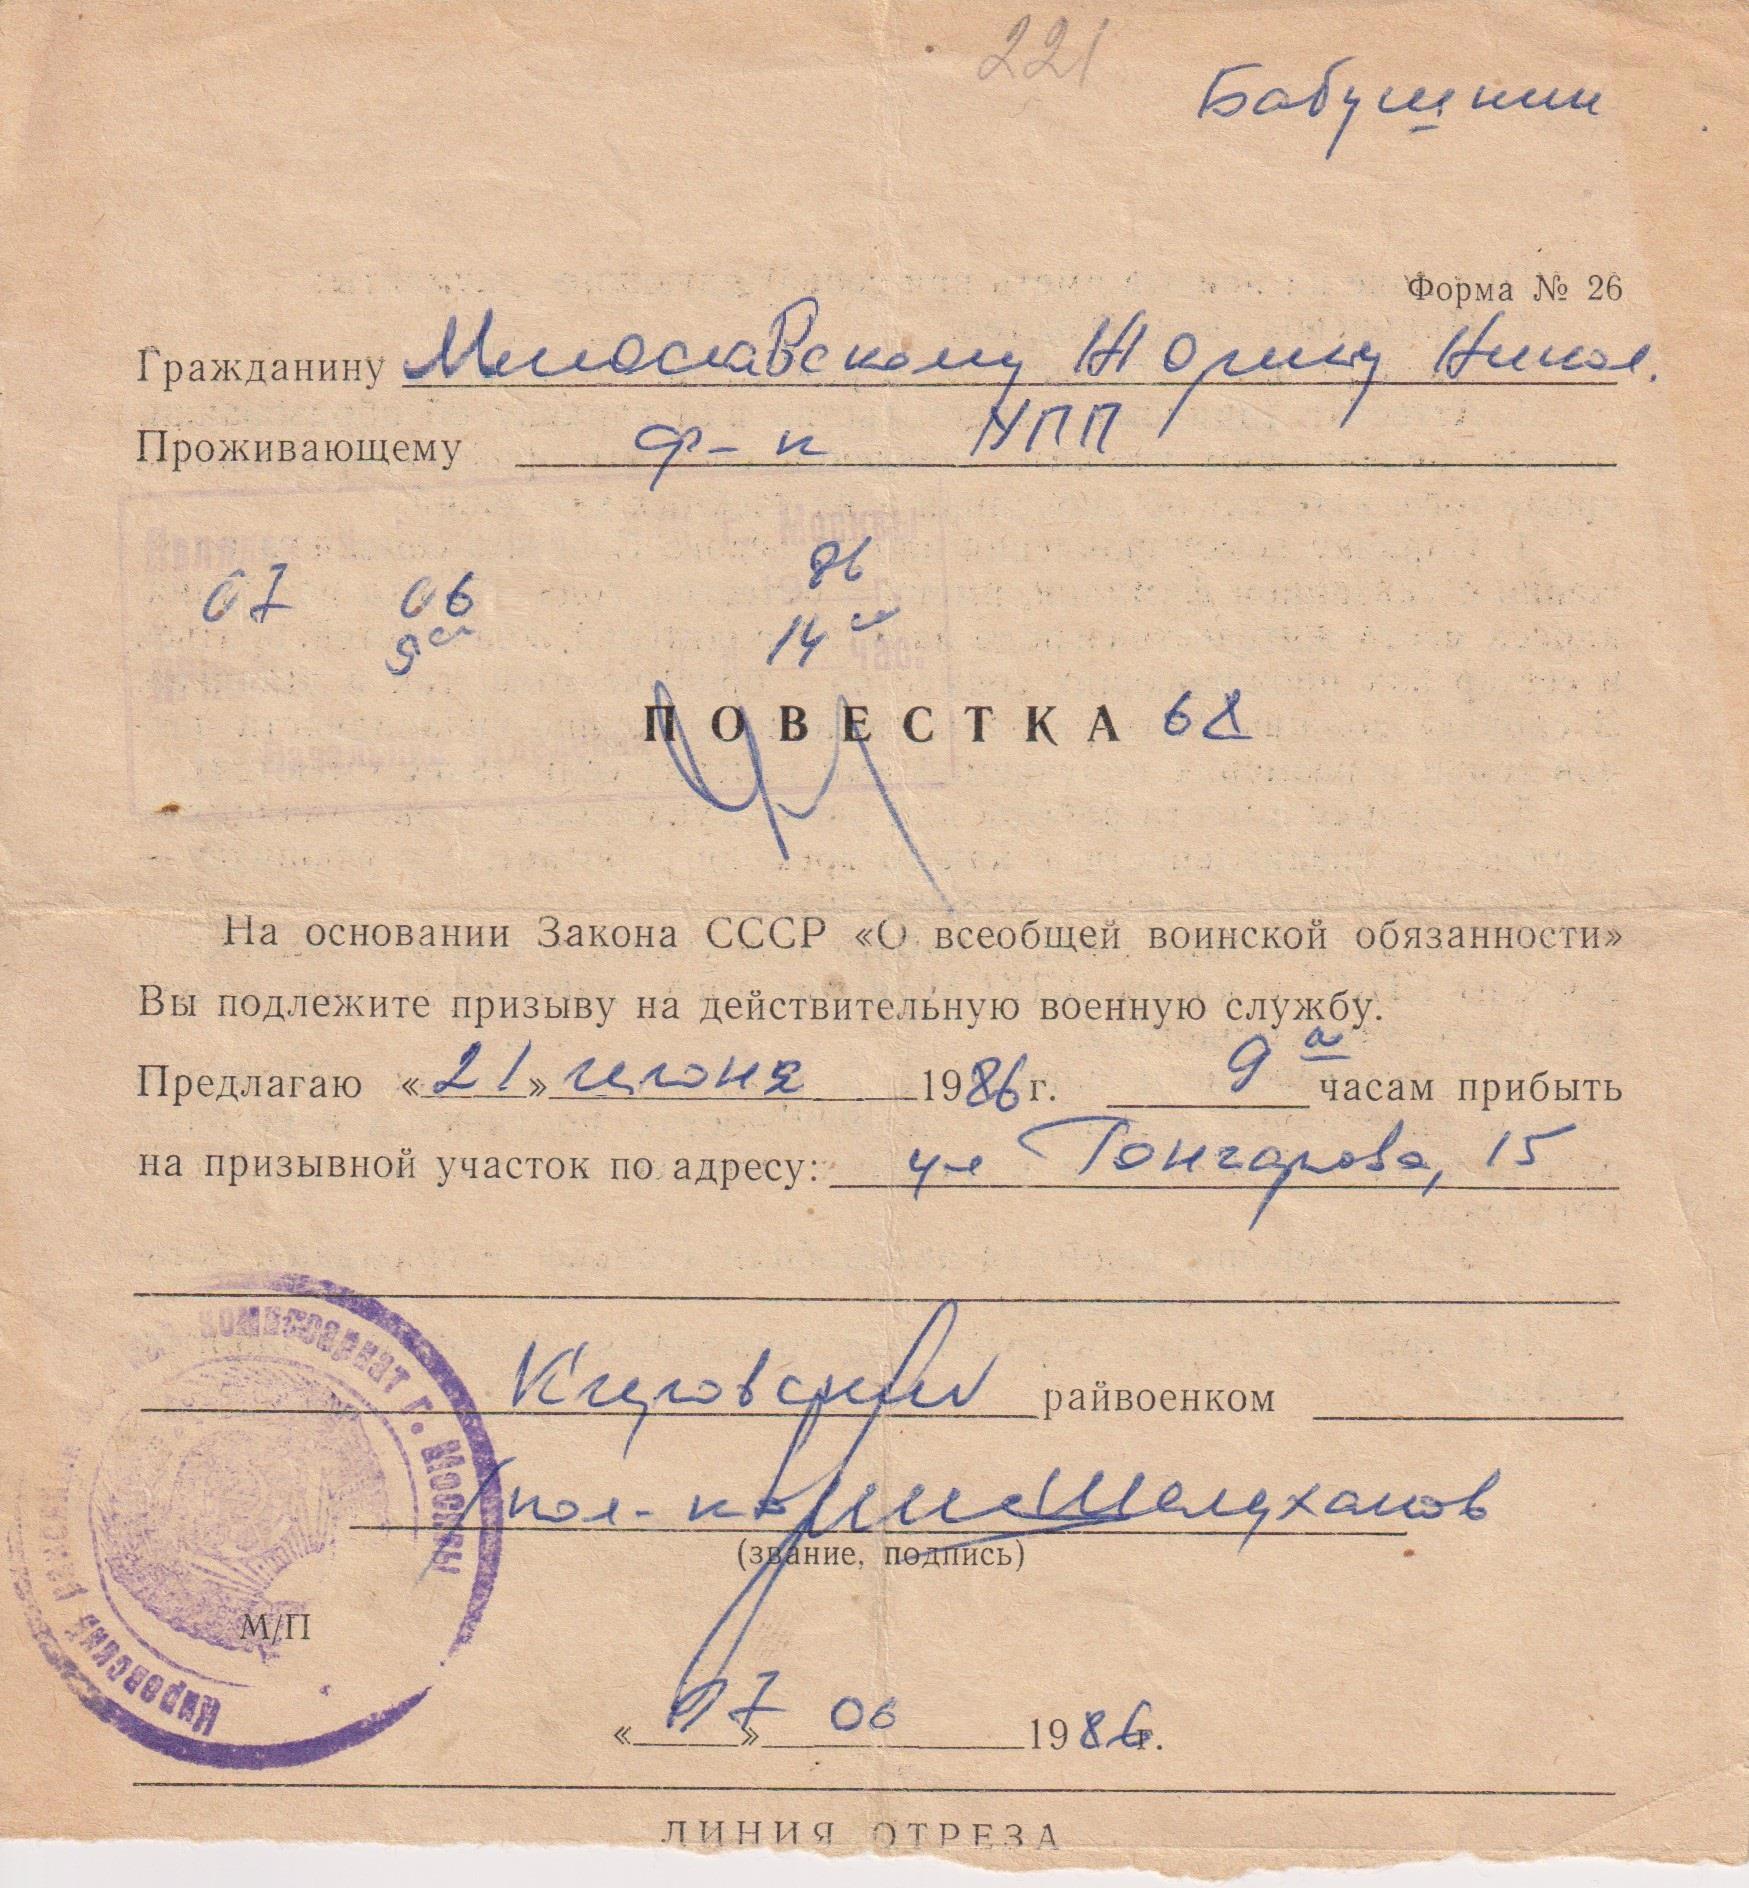 221
Бабушкин
Форма № 26
Гражданину Милославскому Юрию Никол.
Проживающему ф-к НПП
07 06 86
9⁰⁰ 14⁰⁰
ПОВЕСТКА 68
На основании Закона СССР «О всеобщей воинской обязанности»
Вы подлежите призыву на действительную военную службу.
Предлагаю «21» июня 1986 г. 9⁰⁰ часам прибыть
на призывной участок по адресу: ул Гончарова, 15
Кировский райвоенком
(звание, подпись)
М/П
Кировский комиссариат г. Москвы
06 1986 г.
ЛИНИЯ ОТРЕЗА